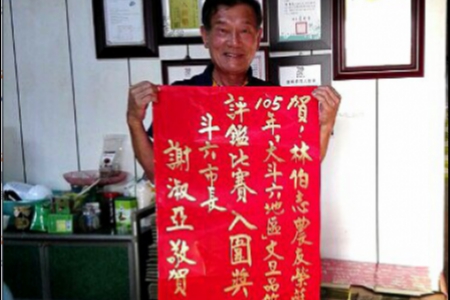 賀！林伯志農友榮
105年，大斗六地區文旦品
評鑑比賽入圍獎
斗六市長
謝淑亞敬賀